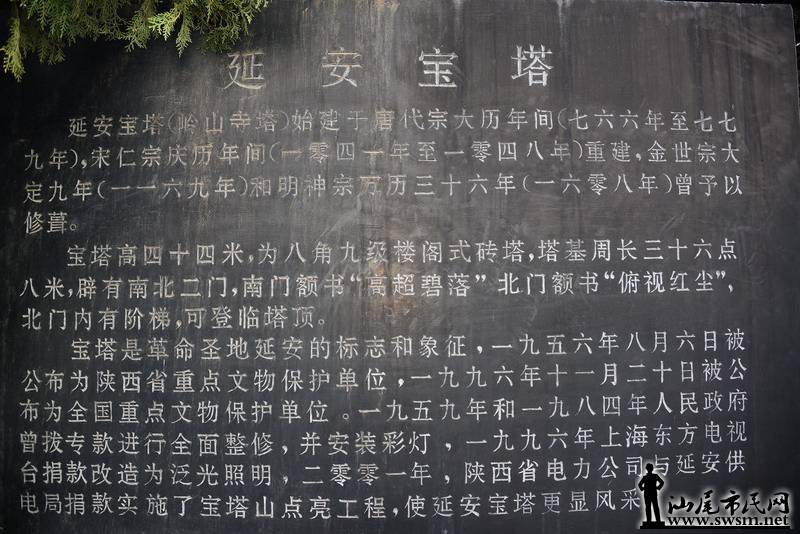 延安宝塔
延安宝塔(岭山寺塔)始建于唐代宗大历年间(七六六年至七七
九年),宋仁宗庆历年间(一零四一年至一零四八年)重建,金世宗大
定九年(一一六九年)和明神宗万历三十六年(一六零八年)曾予以
修葺。
宝塔高四十四米,为八角九级楼阁式砖塔,塔基周长三十六点
八米,辟有南北二门,南门额书“高超碧落”北门额书“俯视红尘”,
北门内有阶梯,可登临塔顶。
宝塔是革命圣地延安的标志和象征,一九五六年八月六日被
公布为陕西省重点文物保护单位,一九九六年十一月二十日被公
布为全国重点文物保护单位。一九五九年和一九八四年人民政府
曾拨专款进行全面整修,并安装彩灯,一九九六年上海东方电视
台捐款改造为泛光照明,二零零一年,陕西省电力公司与延安供
电局捐款实施了宝塔山点亮工程,使延安宝塔更显风采
汕尾市民网
www.swsm.net